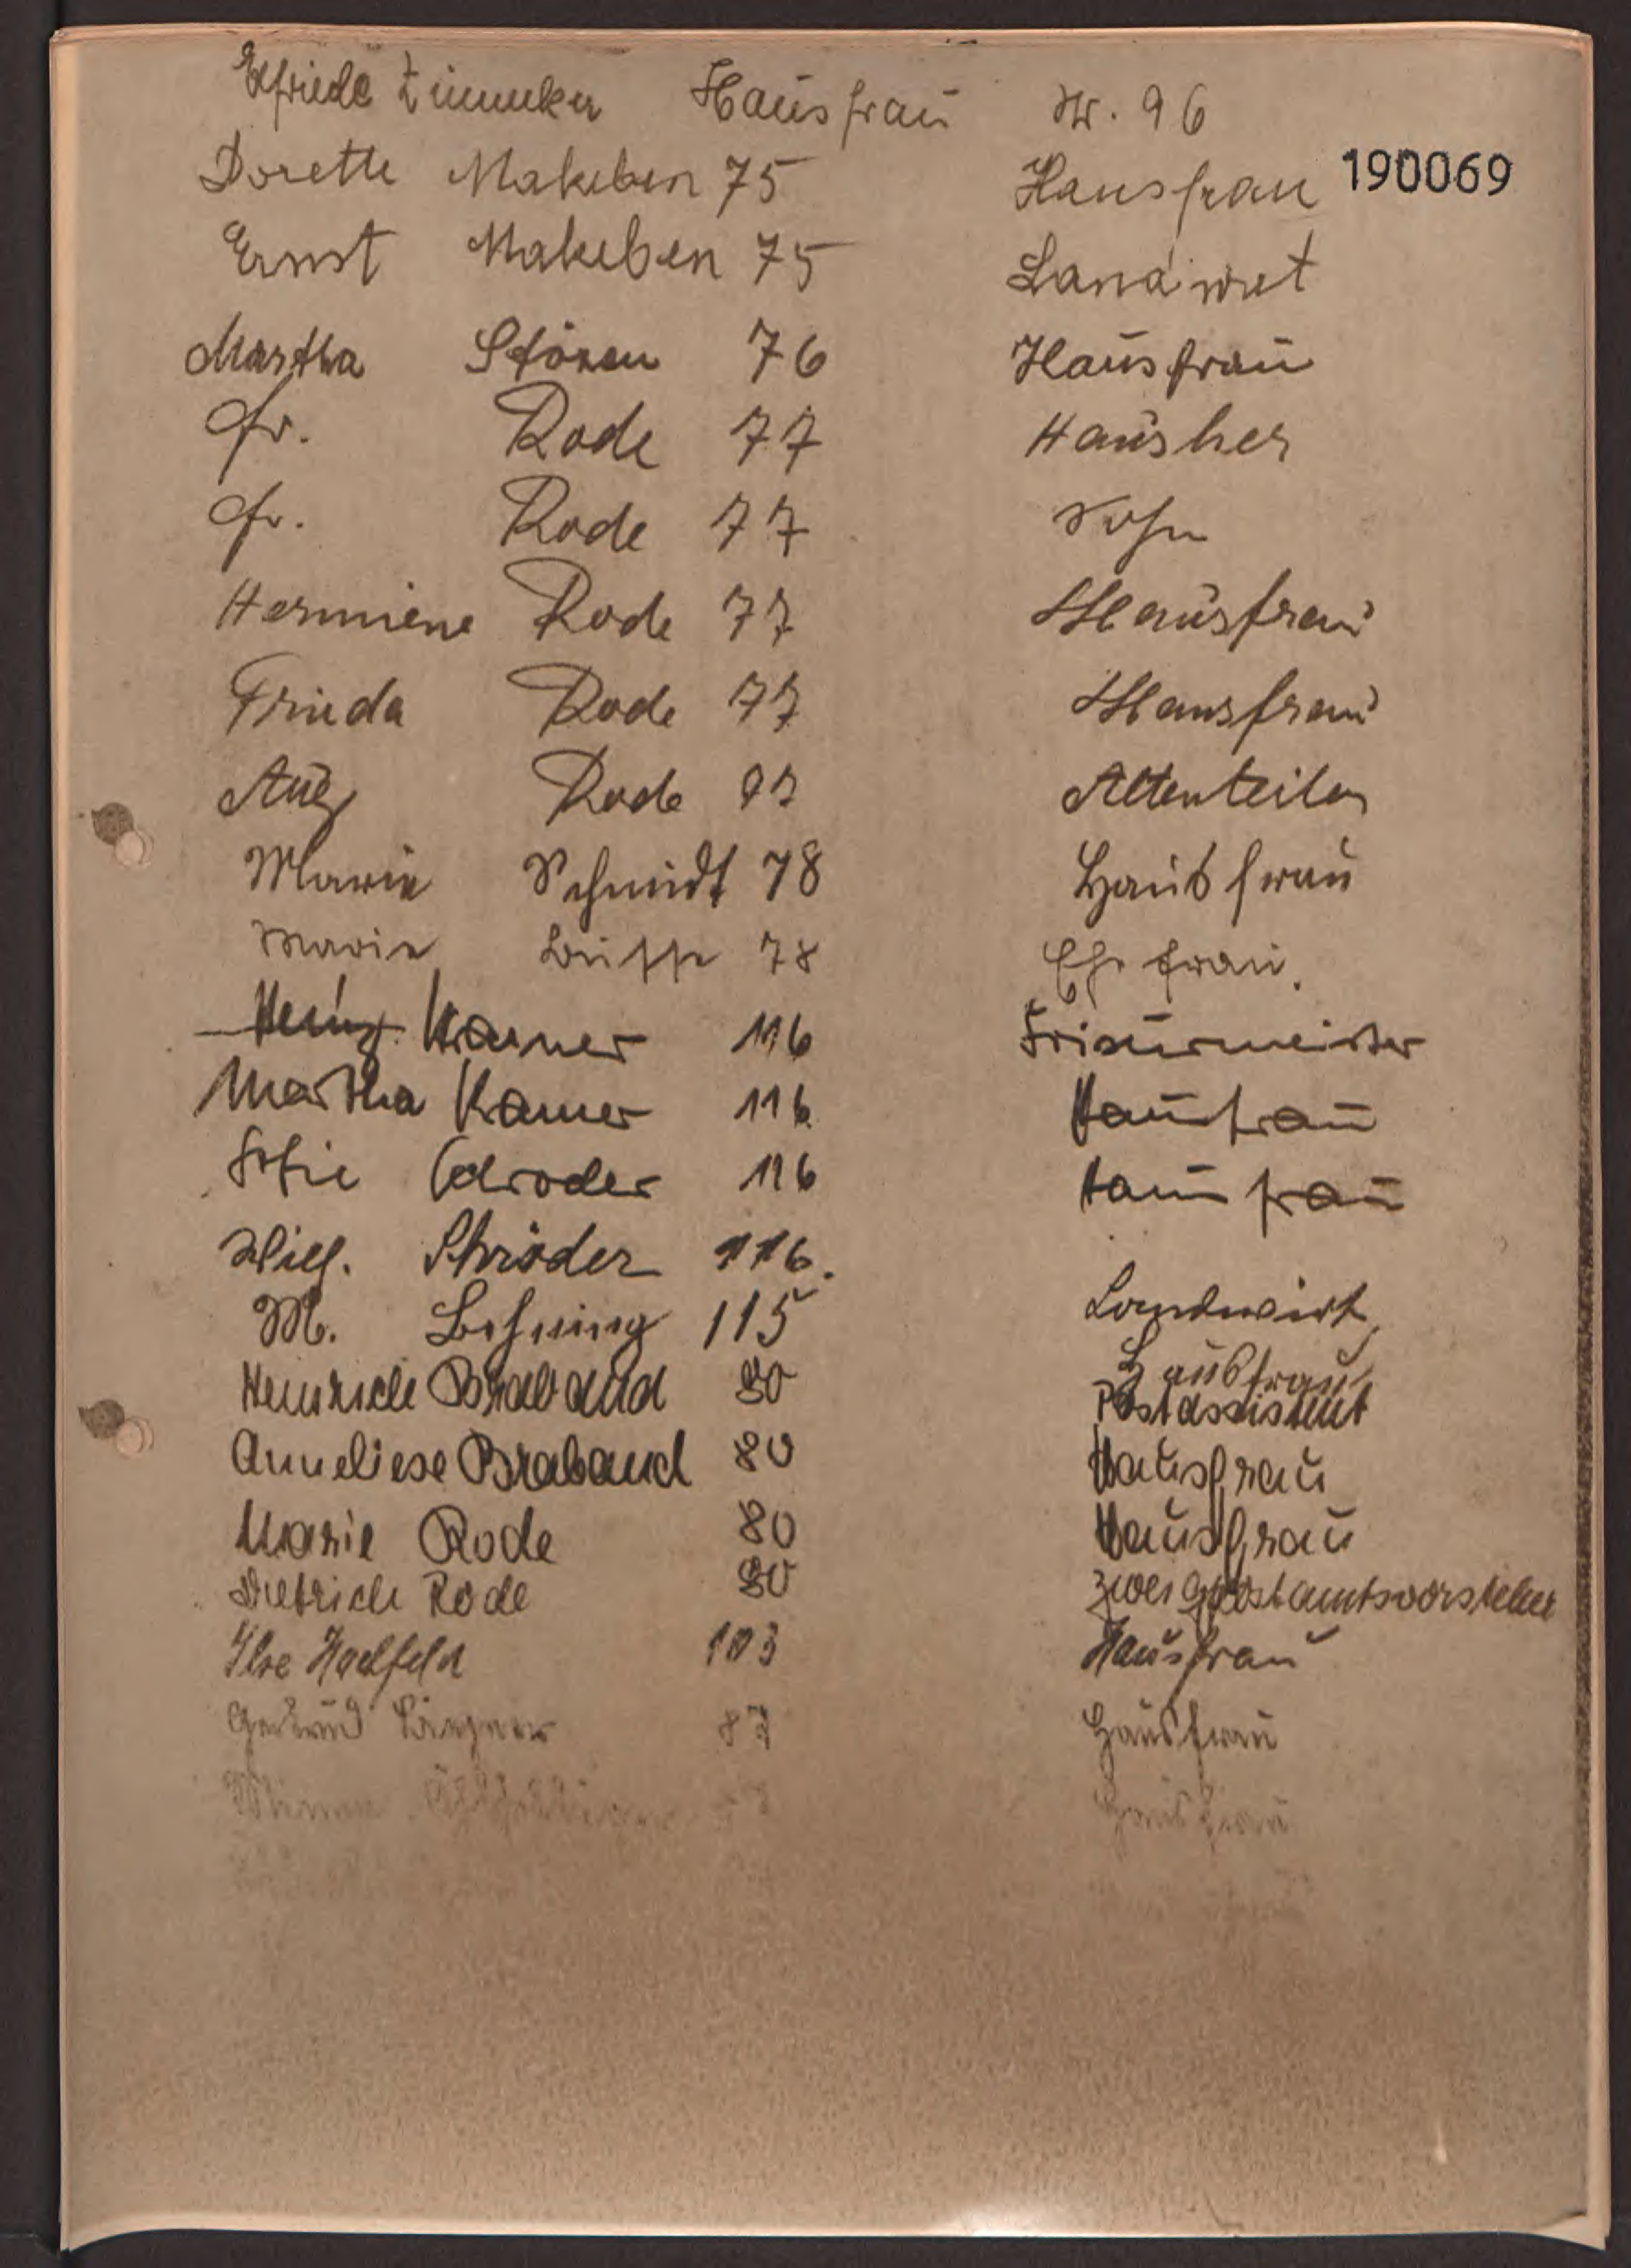 Elfriede Zimmeker Hausfrau Nr. 96
190069
Dorette Makeben 75 Hausfrau
Ernst Makeben 75 Landwirt
Martha Stöxen 76 Hausfrau
Fr. Rode 77 Hausher
Fr. Rode 77 Sohn
Hermiene Rode 77 Hausfrau
Frieda Rode 77 Hausfrau
Aug Rode 97 Altenteiler
Marie Schmidt 78 Hausfrau
Marie 78 Ehefrau.
Heinz Kramer 116 Friseurmeister
Martha Kramer 116 Hausfrau
Sofie Schroder 116 Hausfrau
Wilh. Schröder 116. Landwirt
M. Behning 115 Hausfrau
Heinrich Braband 80 Postassistent
Anneliese Braband 80 Hausfrau
Marie Rode 80 Hausfrau
Dietrich Rode 80 Zweigpostamtsvorsteher
Ilse Haelfeld 103 Hausfrau
Gertrud 87 Hausfrau
Hausfrau